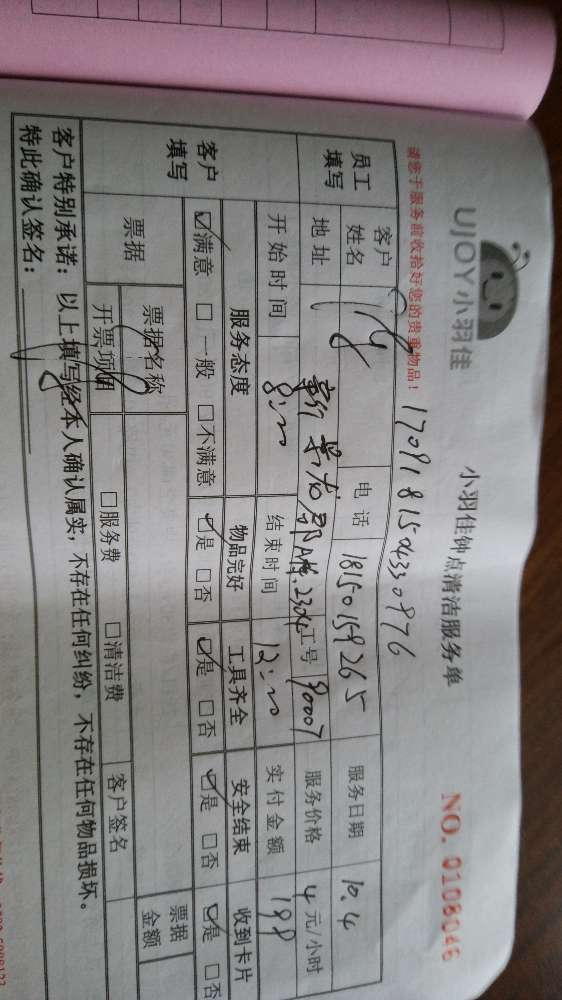 UJOY小羽佳
小羽佳钟点清洁服务单
NO. 0108046
请您于服务前收拾好您的贵重物品!
1709181504330976
员工填写
客户姓名
电话 18150159265
服务日期 10.4
地址
景龙郡A栋.2304
工号 90007
服务价格 4元/小时
开始时间 8:20
结束时间 12:20
实付金额 198
客户填写
服务态度 物品完好 工具齐全 安全结束 收到卡片
☑满意 □一般 □不满意 ☑是 □否 ☑是 □否 ☑是 □否 ☑是 □否
票据
票据名称
票据金额
开票项目 □服务费 □清洁费
客户签名
客户特别承诺:以上填写经本人确认属实,不存在任何纠纷,不存在任何物品损坏。
特此确认签名: